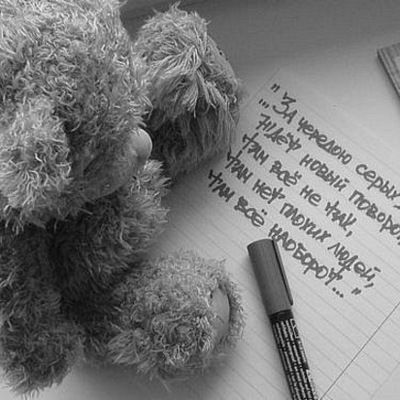 "...За чередою серых
ждёт новый поворот
там всё не так,
там нет плохих людей,
там всё наоборот..."